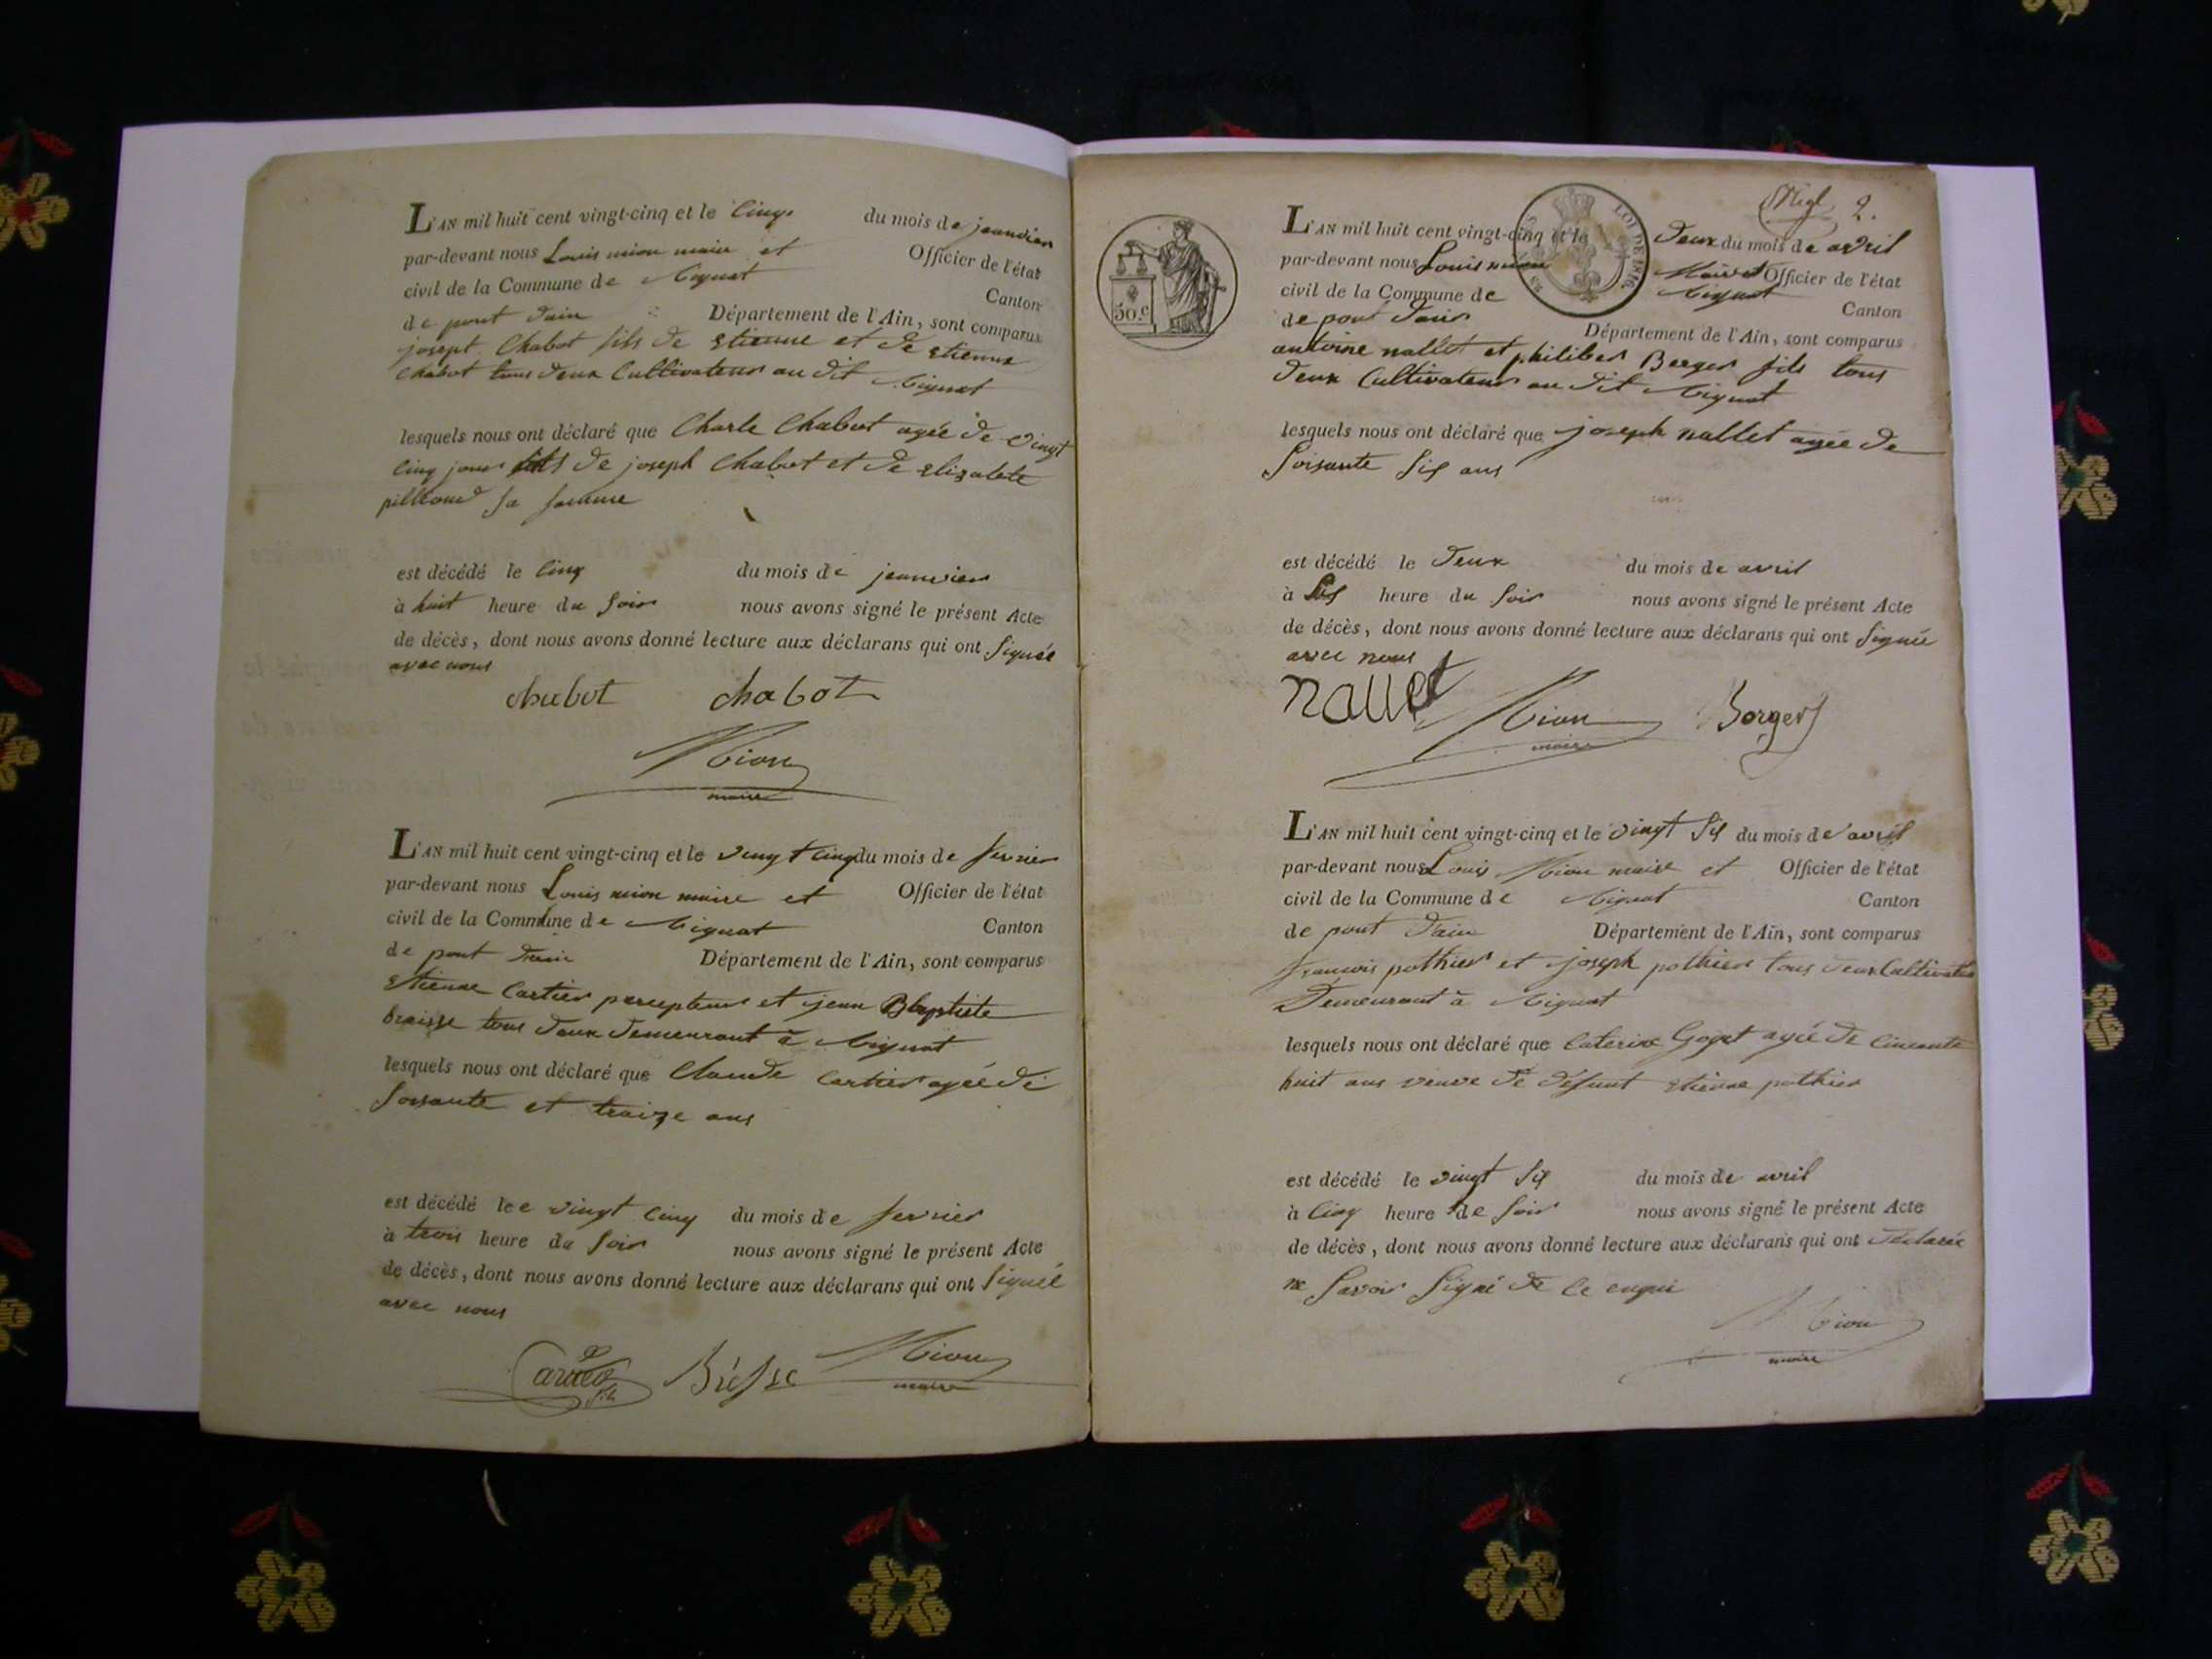 L'AN mil huit cent vingt-cinq et le Cinq du mois de jeanvier
par-devant nous Louis mion maire et Officier de l'état
civil de la Commune de Mignat Canton
de pont dain Département de l'Ain, sont comparus
joseph Chabot fils de Etienne et de Etienne
Chabot tous deux Cultivateur au dit Mignat
lesquels nous ont déclaré que Charle Chabot agée de vingt
Cinq jours fils de joseph Chabot et de Elizabete
sa famme
est décédé le Cinq du mois de jeanvier
à huit heure du Soir nous avons signé le présent Acte
de décès, dont nous avons donné lecture aux déclarans qui ont Signéé
avec nous
chabot chabot
Mion
maire
L'AN mil huit cent vingt-cinq et le vingt Cinq du mois de fevrier
par-devant nous Louis mion maire et Officier de l'état
civil de la Commune de Mignat Canton
de pont dain Département de l'Ain, sont comparus
Etienne Cartier percepteur et jean Baptiste
braisse tous deux demeurant à Mignat
lesquels nous ont déclaré que Claude Cartier agéé de
Soisante et traize ans
est décédé le vingt Cinq du mois de fevrier
à trois heure du Soir nous avons signé le présent Acte
de décès, dont nous avons donné lecture aux déclarans qui ont Signéé
avec nous
Mion
maire
2.
L'AN mil huit cent vingt-cinq et le Deux du mois de avril
par-devant nous Louis mion Maire et Officier de l'état
civil de la Commune de Mignat Canton
de pont dain Département de l'Ain, sont comparus
antoine nallet et philiber Berger fils tous
deux Cultivateur au dit Mignat
lesquels nous ont déclaré que joseph nallet agée de
Soisante Six ans
est décédé le Deux du mois de avril
à Six heure du Soir nous avons signé le présent Acte
de décès, dont nous avons donné lecture aux déclarans qui ont Signée
avec nous
nallet Mion Borger
maire
L'AN mil huit cent vingt-cinq et le vingt Six du mois de avril
par-devant nous Louis Mion maire et Officier de l'état
civil de la Commune de Mignat Canton
de pont dain Département de l'Ain, sont comparus
francois pothier et joseph pothier tous deux Cultivateur
Demeurant à Mignat
lesquels nous ont déclaré que Caterine Goyet agéé de Cincante
huit ans veuve de défunt Etienne pothier
est décédé le vingt Six du mois de avril
à Cinq heure de Soir nous avons signé le présent Acte
de décès, dont nous avons donné lecture aux déclarans qui ont déclarée
ne Savoir Signé de Ce enqui
Mion
maire
50.C
LOI DE 1816.